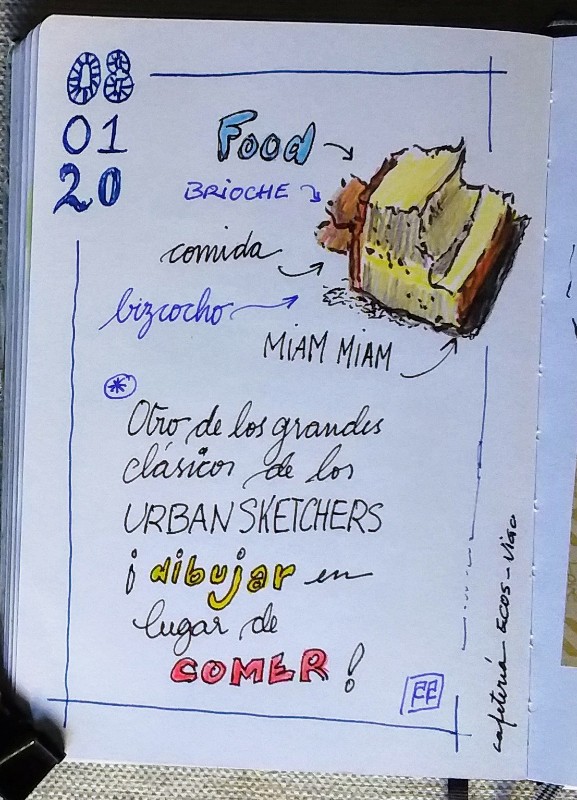 08
01
20
Food
BRiOCHE
comida
bizcocho
MiAM MiAM
*
Otro de los grandes
clásicos de los
URBAN SKETCHERS
¡dibujar en
lugar de
COMER!
cafetería ECOS - Vigo